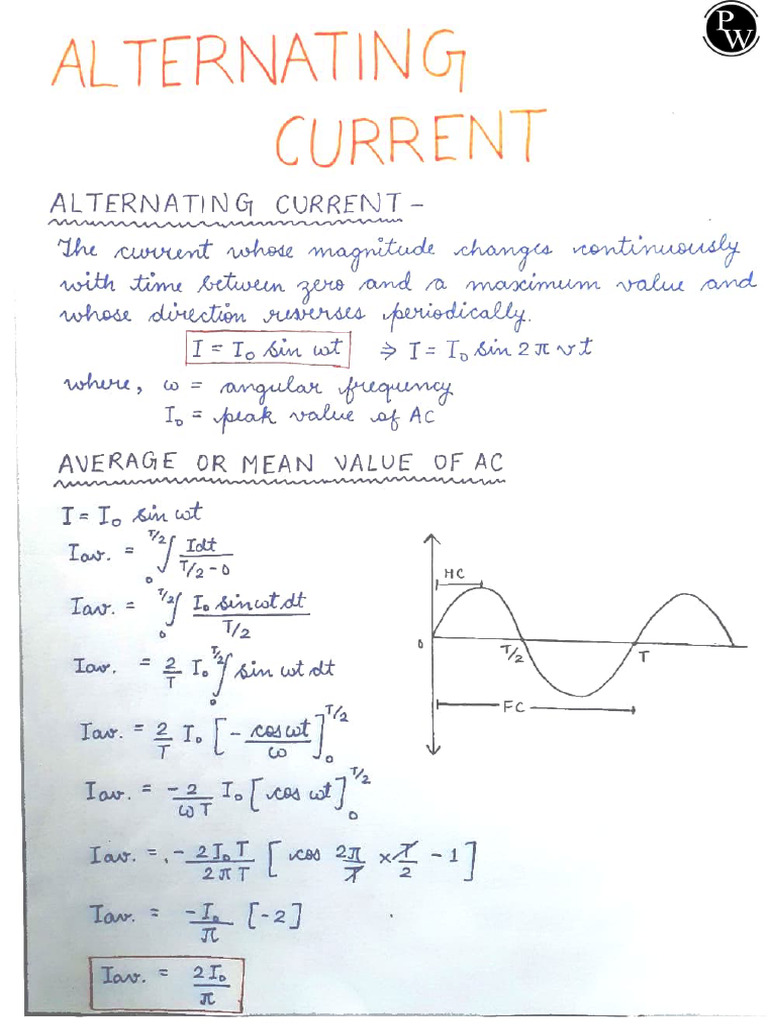 PW
ALTERNATING
CURRENT
ALTERNATING CURRENT -
The current whose magnitude changes continuously
with time between zero and a maximum value and
whose direction reverses periodically.
I = I₀ sin ωt ⇒ I = I₀ sin 2πνt
where, ω = angular frequency
I₀ = peak value of AC
AVERAGE OR MEAN VALUE OF AC
I = I₀ sin ωt
Iav. = ₀∫^T/2 Idt / T/2 - 0
Iav. = ₀∫^T/2 I₀ sinωt dt / T/2
Iav. = 2/T I₀ ₀∫^T/2 sin ωt dt
Iav. = 2/T I₀ [- cosωt/ω]₀^T/2
Iav. = -2/ωT I₀ [cos ωt]₀^T/2
Iav. = - 2I₀T/2πT [cos 2π/T × T/2 - 1]
Iav. = -I₀/π [-2]
Iav. = 2I₀/π
HC
0 T/2 T
FC